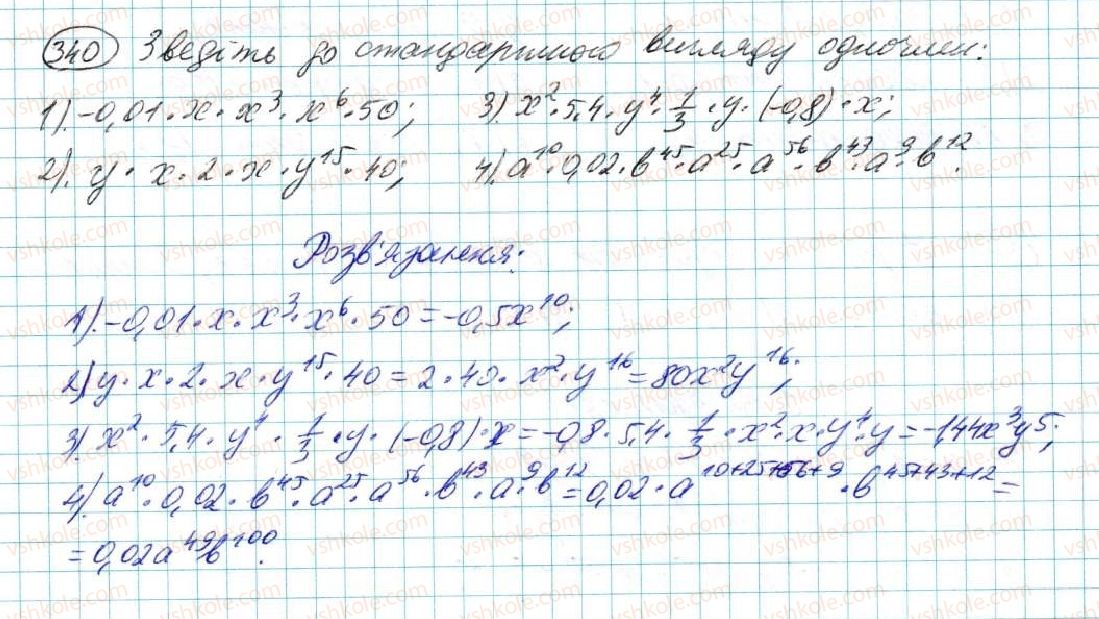 340 Зведіть до стандартного вигляду одночлен:
1). -0,01·x·x³·x⁶·50; 3). x²·5,4·y⁴·1/3·y·(-0,8)·x;
2). y·x·2·x·y¹⁵·40; 4). a¹⁰·0,02·b⁴⁵·a²⁵·a⁵⁶·b⁴³·a⁹·b¹².
Розв'язання:
1). -0,01·x·x³·x⁶·50=-0,5x¹⁰;
2) y·x·2·x·y¹⁵·40=2·40·x²·y¹⁶=80x²y¹⁶;
3). x²·5,4·y⁴·1/3·y·(-0,8)·x=-0,8·5,4·1/3·x²·x·y⁴·y=-1,44x³y5;
4). a¹⁰·0,02·b⁴⁵·a²⁵·a⁵⁶·b⁴³·a⁹·b¹²=0,02·a¹⁰⁺²⁵⁺⁵⁶⁺⁹·b⁴⁵⁺⁴³⁺¹²=
=0,02a⁴⁹b¹⁰⁰.